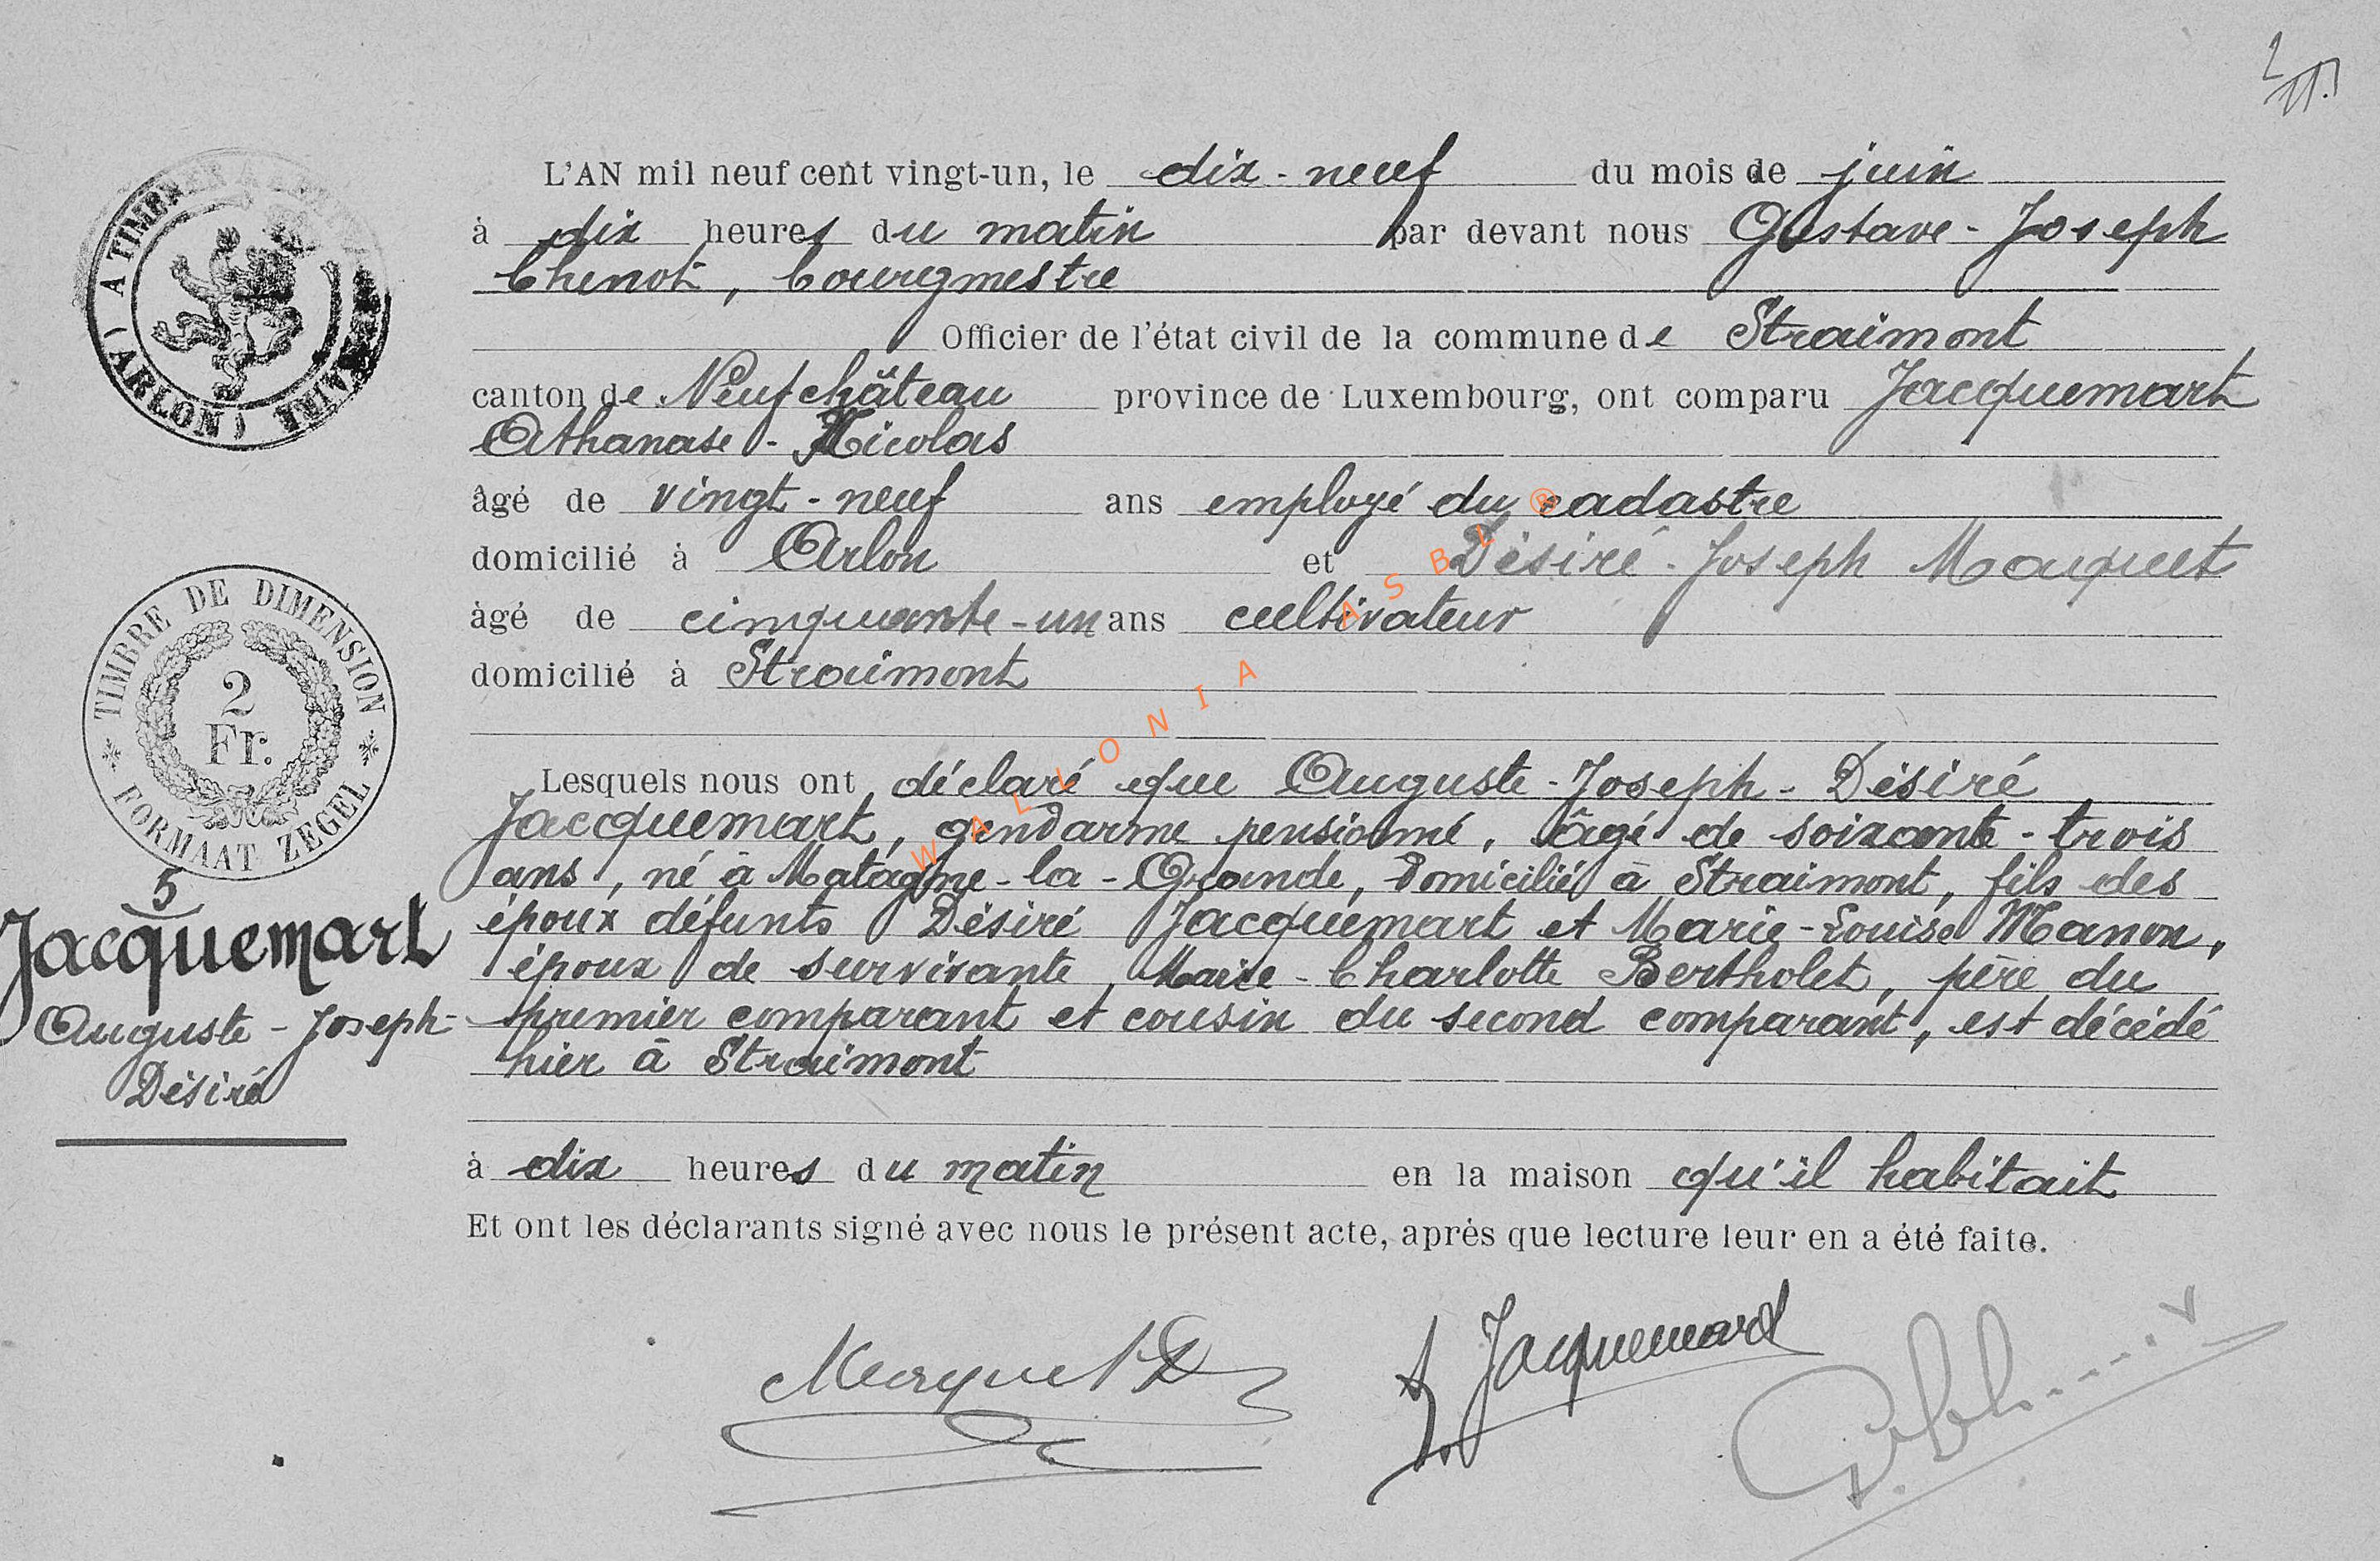 L'AN mil neuf cent vingt-un, le dix-neuf du mois de juin
à dix heures du matin par devant nous Gustave-Joseph
Chenot, bourgmestre
Officier de l'état civil de la commune de Straimont
canton de Neufchâteau province de Luxembourg, ont comparu Jacquemart
Athanase-Nicolas
âgé de vingt-neuf ans employé du cadastre
domicilié à Arlon et Désiré-Joseph Maquet
âgé de cinquante-un ans cultivateur
domicilié à Straimont
Lesquels nous ont déclaré que Auguste-Joseph-Désiré
Jacquemart, gendarme pensionné, âgé de soixante-trois
ans, né à Matagne-la-Grande, domicilié à Straimont, fils des
époux défunts Désiré Jacquemart et Marie-Louise Manon,
époux de survivante, Marie-Charlotte Bertholet, père du
premier comparant et cousin du second comparant, est décédé
hier à Straimont
à dix heures du matin en la maison qu'il habitait
Et ont les déclarants signé avec nous le présent acte, après que lecture leur en a été faite.
A TIMBRE
(ARLON)
TIMBRE DE DIMENSION
2
Fr.
FORMAAT ZEGEL
5
Jacquemart
Auguste-Joseph-
Désiré
WALLONIA ASBL ®
Maquet D
A. Jacquemart